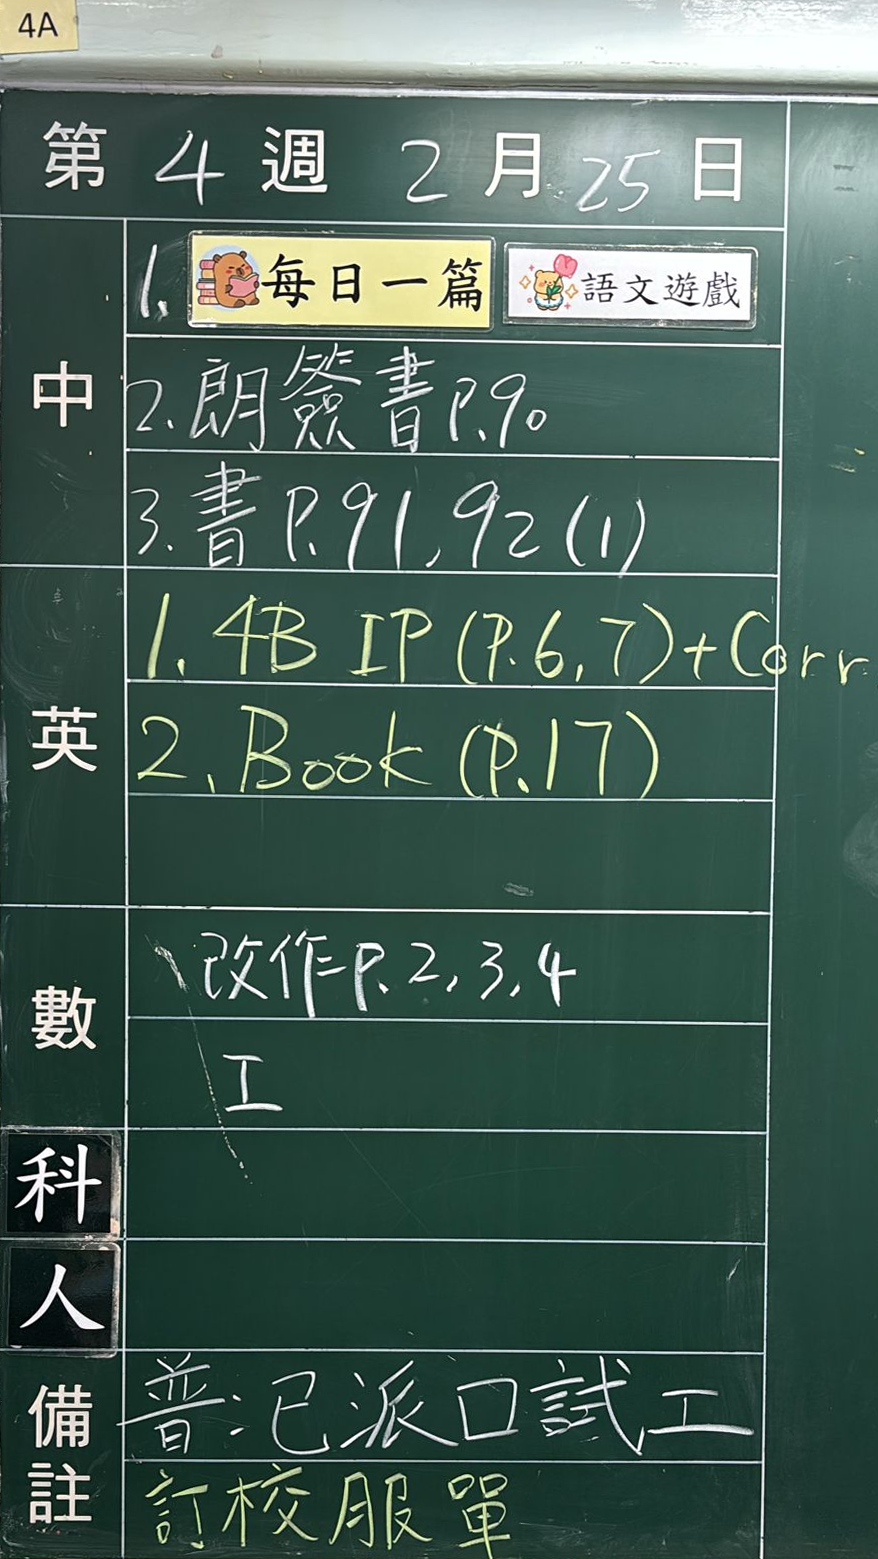 4A
第 4 週 2 月 25 日
中
1. 每日一篇 語文遊戲
2. 朗簽書P.90
3. 書P.91, 92 (1)
英
1. 4B IP (P.6, 7) + Corr
2. Book (P.17)
數
改作P.2, 3, 4
工
科
人
備註
普:已派口試工
訂校服單